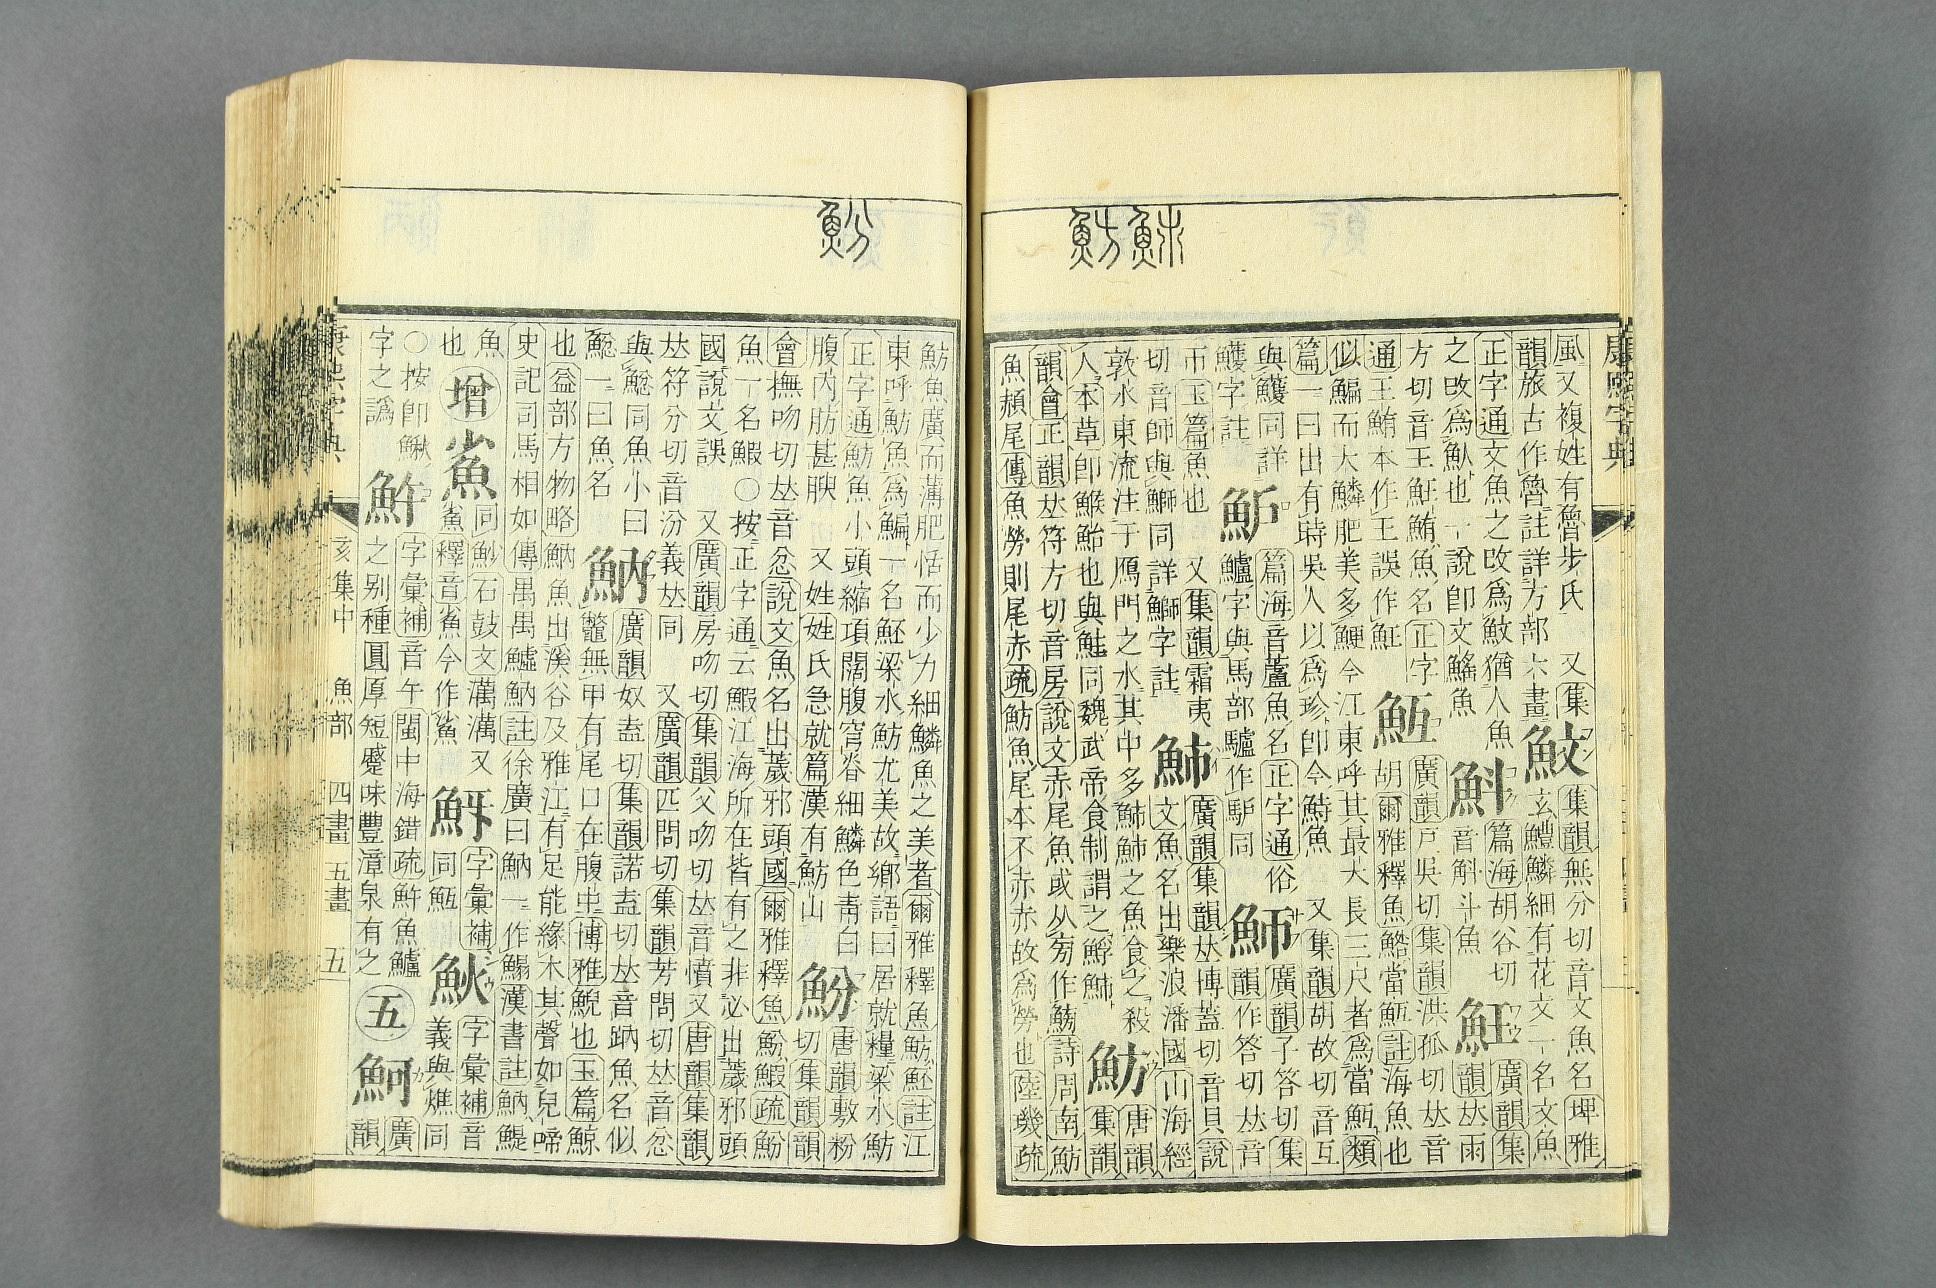 魴𩵋
康熙字典
風又複姓有魯步氏 又集
韻旅古作魯註詳方部六畫
魰
集韻無分切音文魚名埤雅
玄鱧鱗細有花文一名文魚
正字通文魚之攺爲魰猶人魚
之攺爲魜也一說卽文鰩魚
魁
篇海胡谷切
音斛斗魚
魟
廣韻集
韻𠀤雨
方切音王魟鮪魚名正字
通王鮪本作王誤作魟
魱
廣韻戸吳切集韻洪孤切𠀤音
胡爾雅釋魚鯦當魱註海魚也
似鯿而大鱗肥美多鯁今江東呼其最大長三尺者爲當魱類
篇一曰出有時吳人以爲珍卽今鰣魚 又集韻胡故切音互
與鱯同詳
鱯字註
魲
篇海音蘆魚名正字通俗
鱸字與馬部驢作馿同
魳
廣韻子答切集
韻作答切𠀤音
帀玉篇魚也 又集韻霜夷
切音師與鰤同詳鰤字註
𩵢
廣韻集韻𠀤博蓋切音貝說
文魚名出樂浪潘國山海經
敦水東流注于鴈門之水其中多𩵢𩵢之魚食之殺
人本草卽鯸鮐也與鮭同魏武帝食制謂之鯙𩵢
魴
唐韻
集韻
韻會正韻𠀤符方切音房說文赤尾魚或从㫄作鰟詩周南魴
魚赬尾傳魚勞則尾赤疏魴魚尾本不赤赤故爲勞也陸璣疏
魵
魴魚廣而薄肥恬而少力細鱗魚之美者爾雅釋魚魴魾註江
東呼魴魚爲鯿一名魾梁水魴尤美故鄉語曰居就糧梁水魴
正字通魴魚小頭縮項闊腹穹脊細鱗色靑白
腹內肪甚腴 又姓姓氏急就篇漢有魴山
魵
唐韻敷粉
切集韻韻
會撫吻切𠀤音忿說文魚名出薉邪頭國爾雅釋魚魵鰕疏魵
魚一名鰕○按正字通云鰕江海所在皆有之非必出薉邪頭
國說文誤 又廣韻房吻切集韻父吻切𠀤音憤又唐韻集韻
𠀤符分切音汾義𠀤同 又廣韻匹問切集韻芳問切𠀤音忿
與鯼同魚小曰
鯼一曰魚名
魶
廣韻奴盍切集韻諾盍切𠀤音䪏魚名似
鼈無甲有尾口在腹中博雅鯢也玉篇鯨
也益部方物略魶魚出溪谷及雅江有足能緣木其聲如兒啼
史記司馬相如傳禺禺鱋魶註徐廣曰魶一作鰨漢書註魶鯷
魚
也
增
鯊
同魦石鼓文澫澫又
鯊釋音鯊今作鯊
䰳
字彙補
同魱
𩵨
字彙補音
義與鯂同
○按卽鰍
字之譌
䱂
字彙補音午閩中海錯疏䱂魚鱸
之別種圓厚短蹙味豐漳泉有之
五
魺
廣
韻
康熙字典
亥集中 魚部 四畫 五畫 五